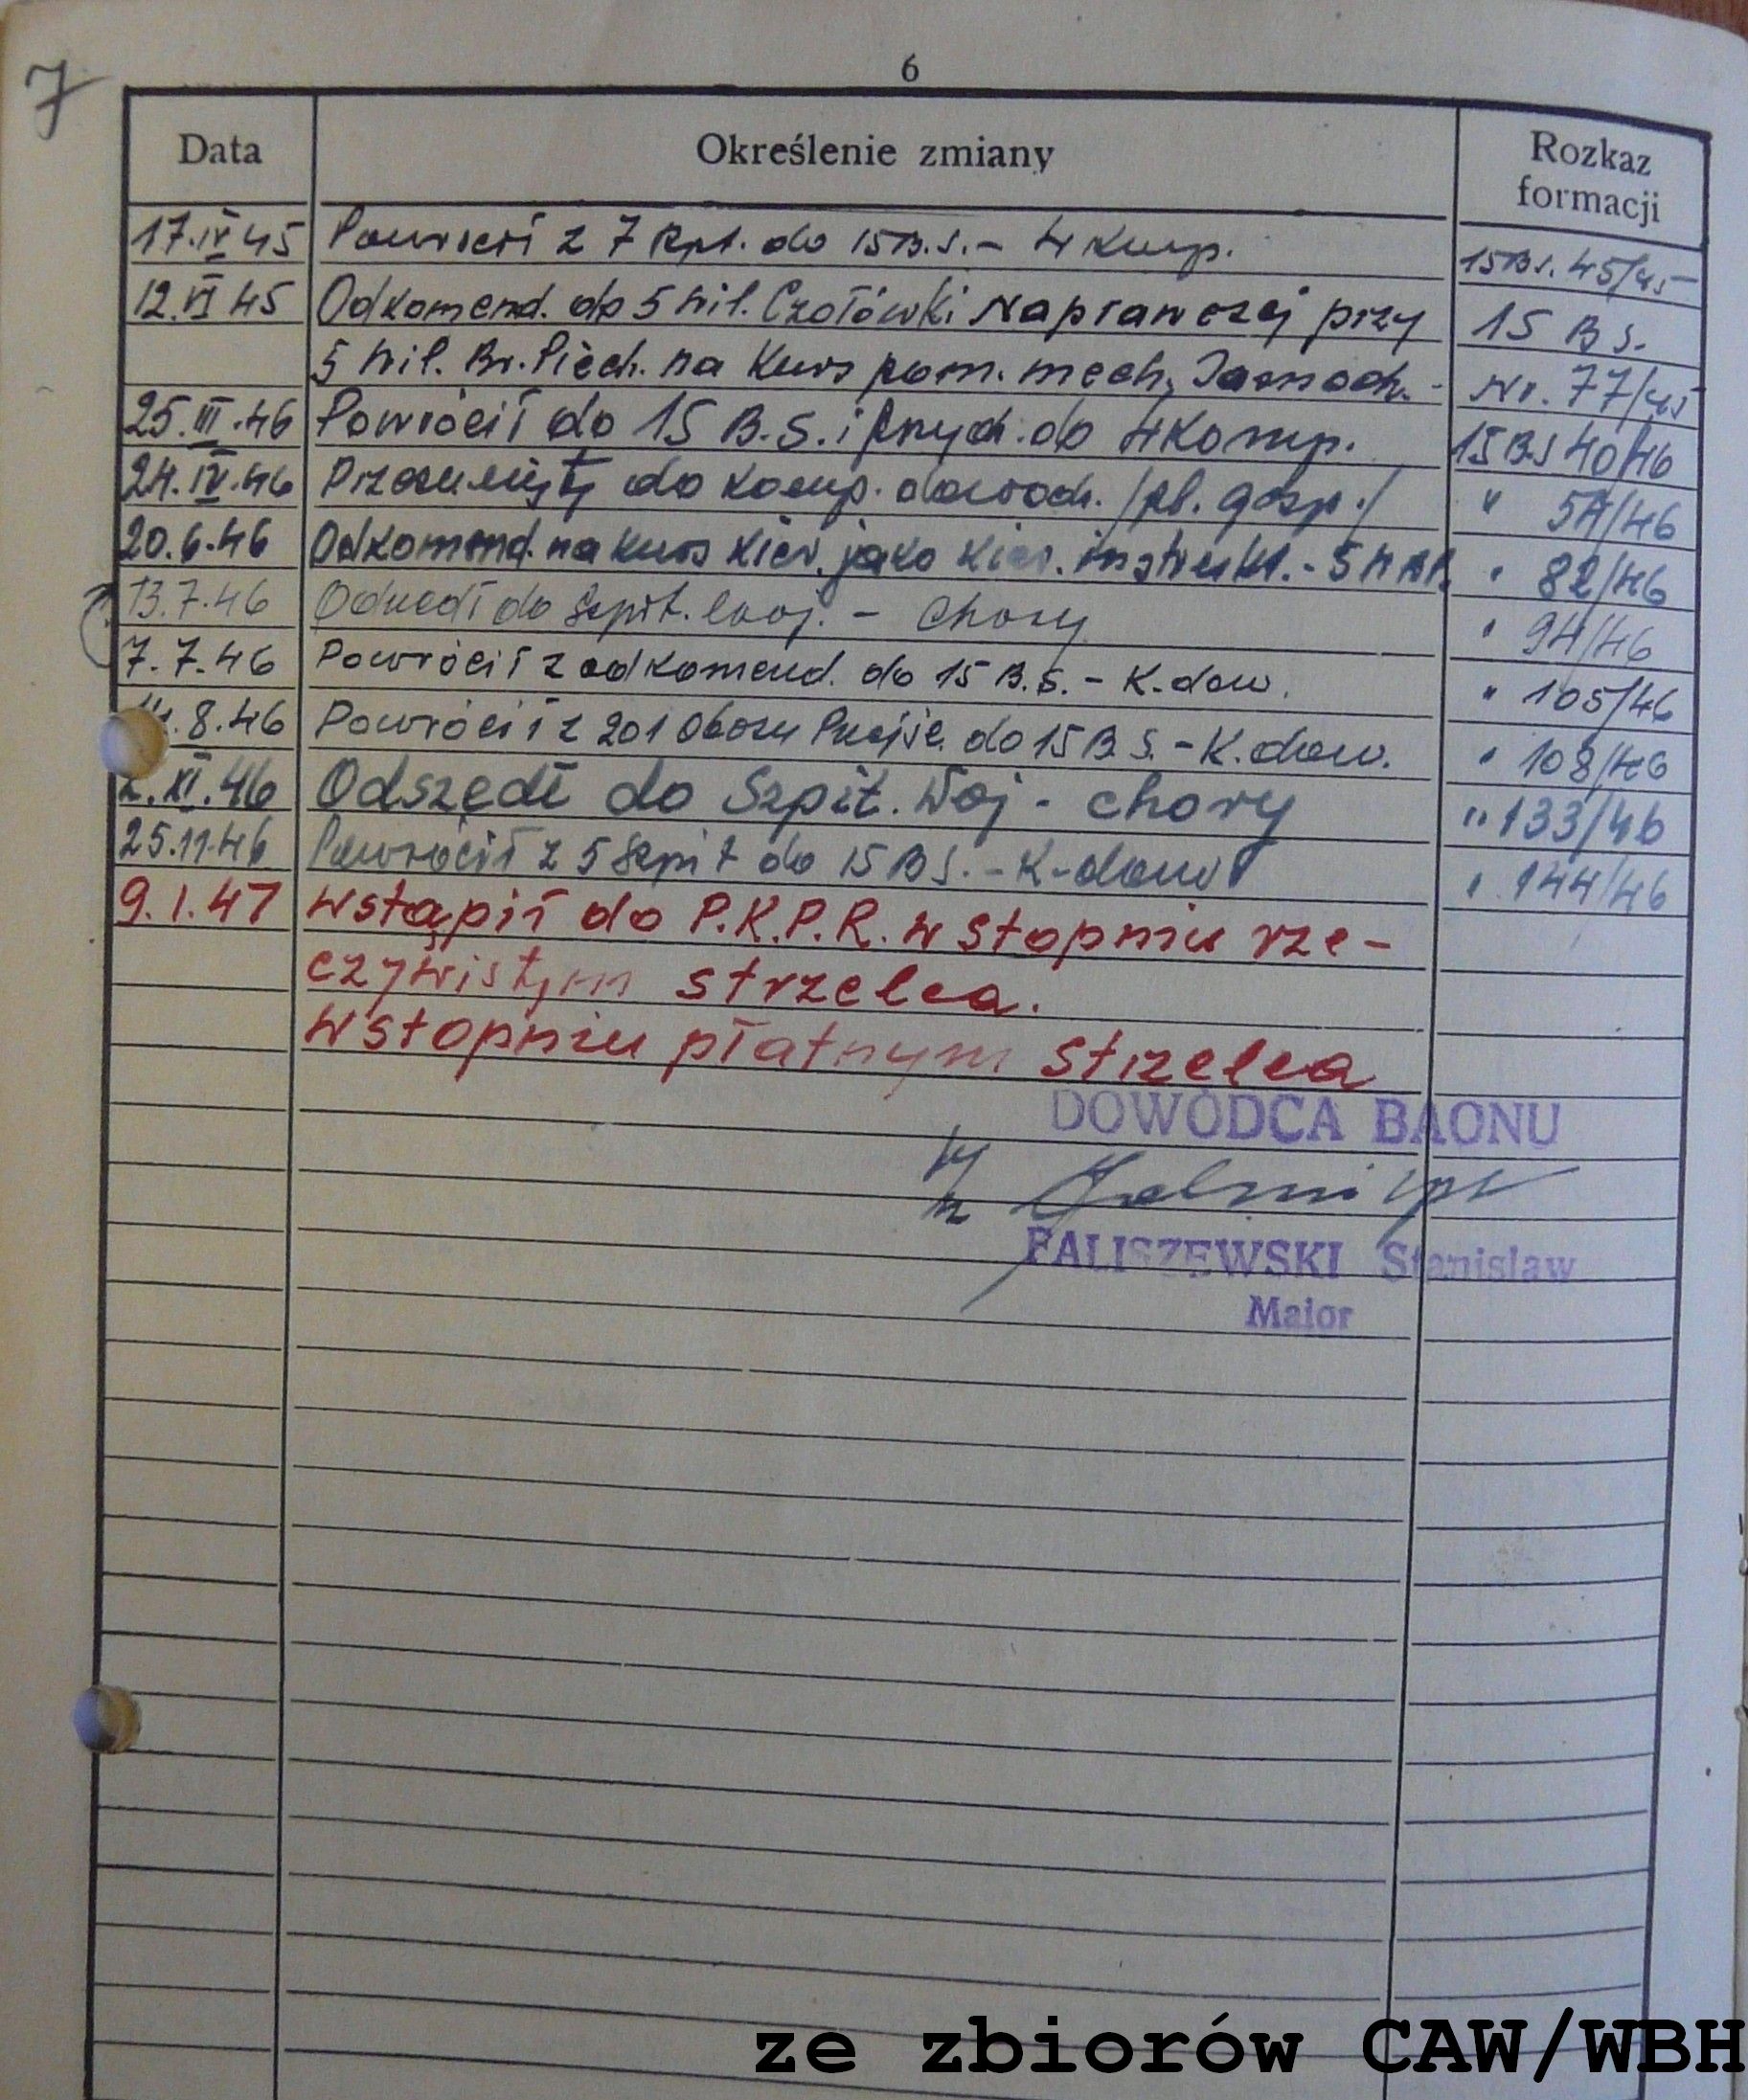 7
6
Data Określenie zmiany Rozkaz formacji
17.IV 45 Powrócił z 7 Rpt. do 15 B.S. - 4 Komp. 15 BS. 45/45
12.VI 45 Odkomend. do 5 Wil. Czołówki Naprawczej przy 15 B S.
5 Wil. Br. Piech. na Kurs pom. mech. Samoch. Nr. 77/45
25.III.46 Powrócił do 15 B.S. i do 4 Komp. 15 BS 40/46
24.IV.46 Przesunięty do Komp. dowodz. /pl. gosp./ " 54/46
20.6.46 Odkomend. na kurs kier. jako kier. instrukt. - " 82/46
13.7.46 Odszedł do Szpit. Woj. - Chory " 94/46
7.7.46 Powrócił z odkomend. do 15 B.S. - K. dow. " 105/46
8.46 Powrócił z 201 Obozu do 15 B.S. - K. dow. " 108/46
2.XI.46 Odszedł do Szpit. Woj - chory " 133/46
25.11.46 Powrócił z 5 Szpit do 15 B S. - K-dow " 144/46
9.1.47 Wstąpił do P.K.P.R. w stopniu rze-
czywistym strzelca.
W stopniu płatnym strzelca
DOWÓDCA BAONU
PALISZEWSKI Stanisław
Major
ze zbiorów CAW/WBH